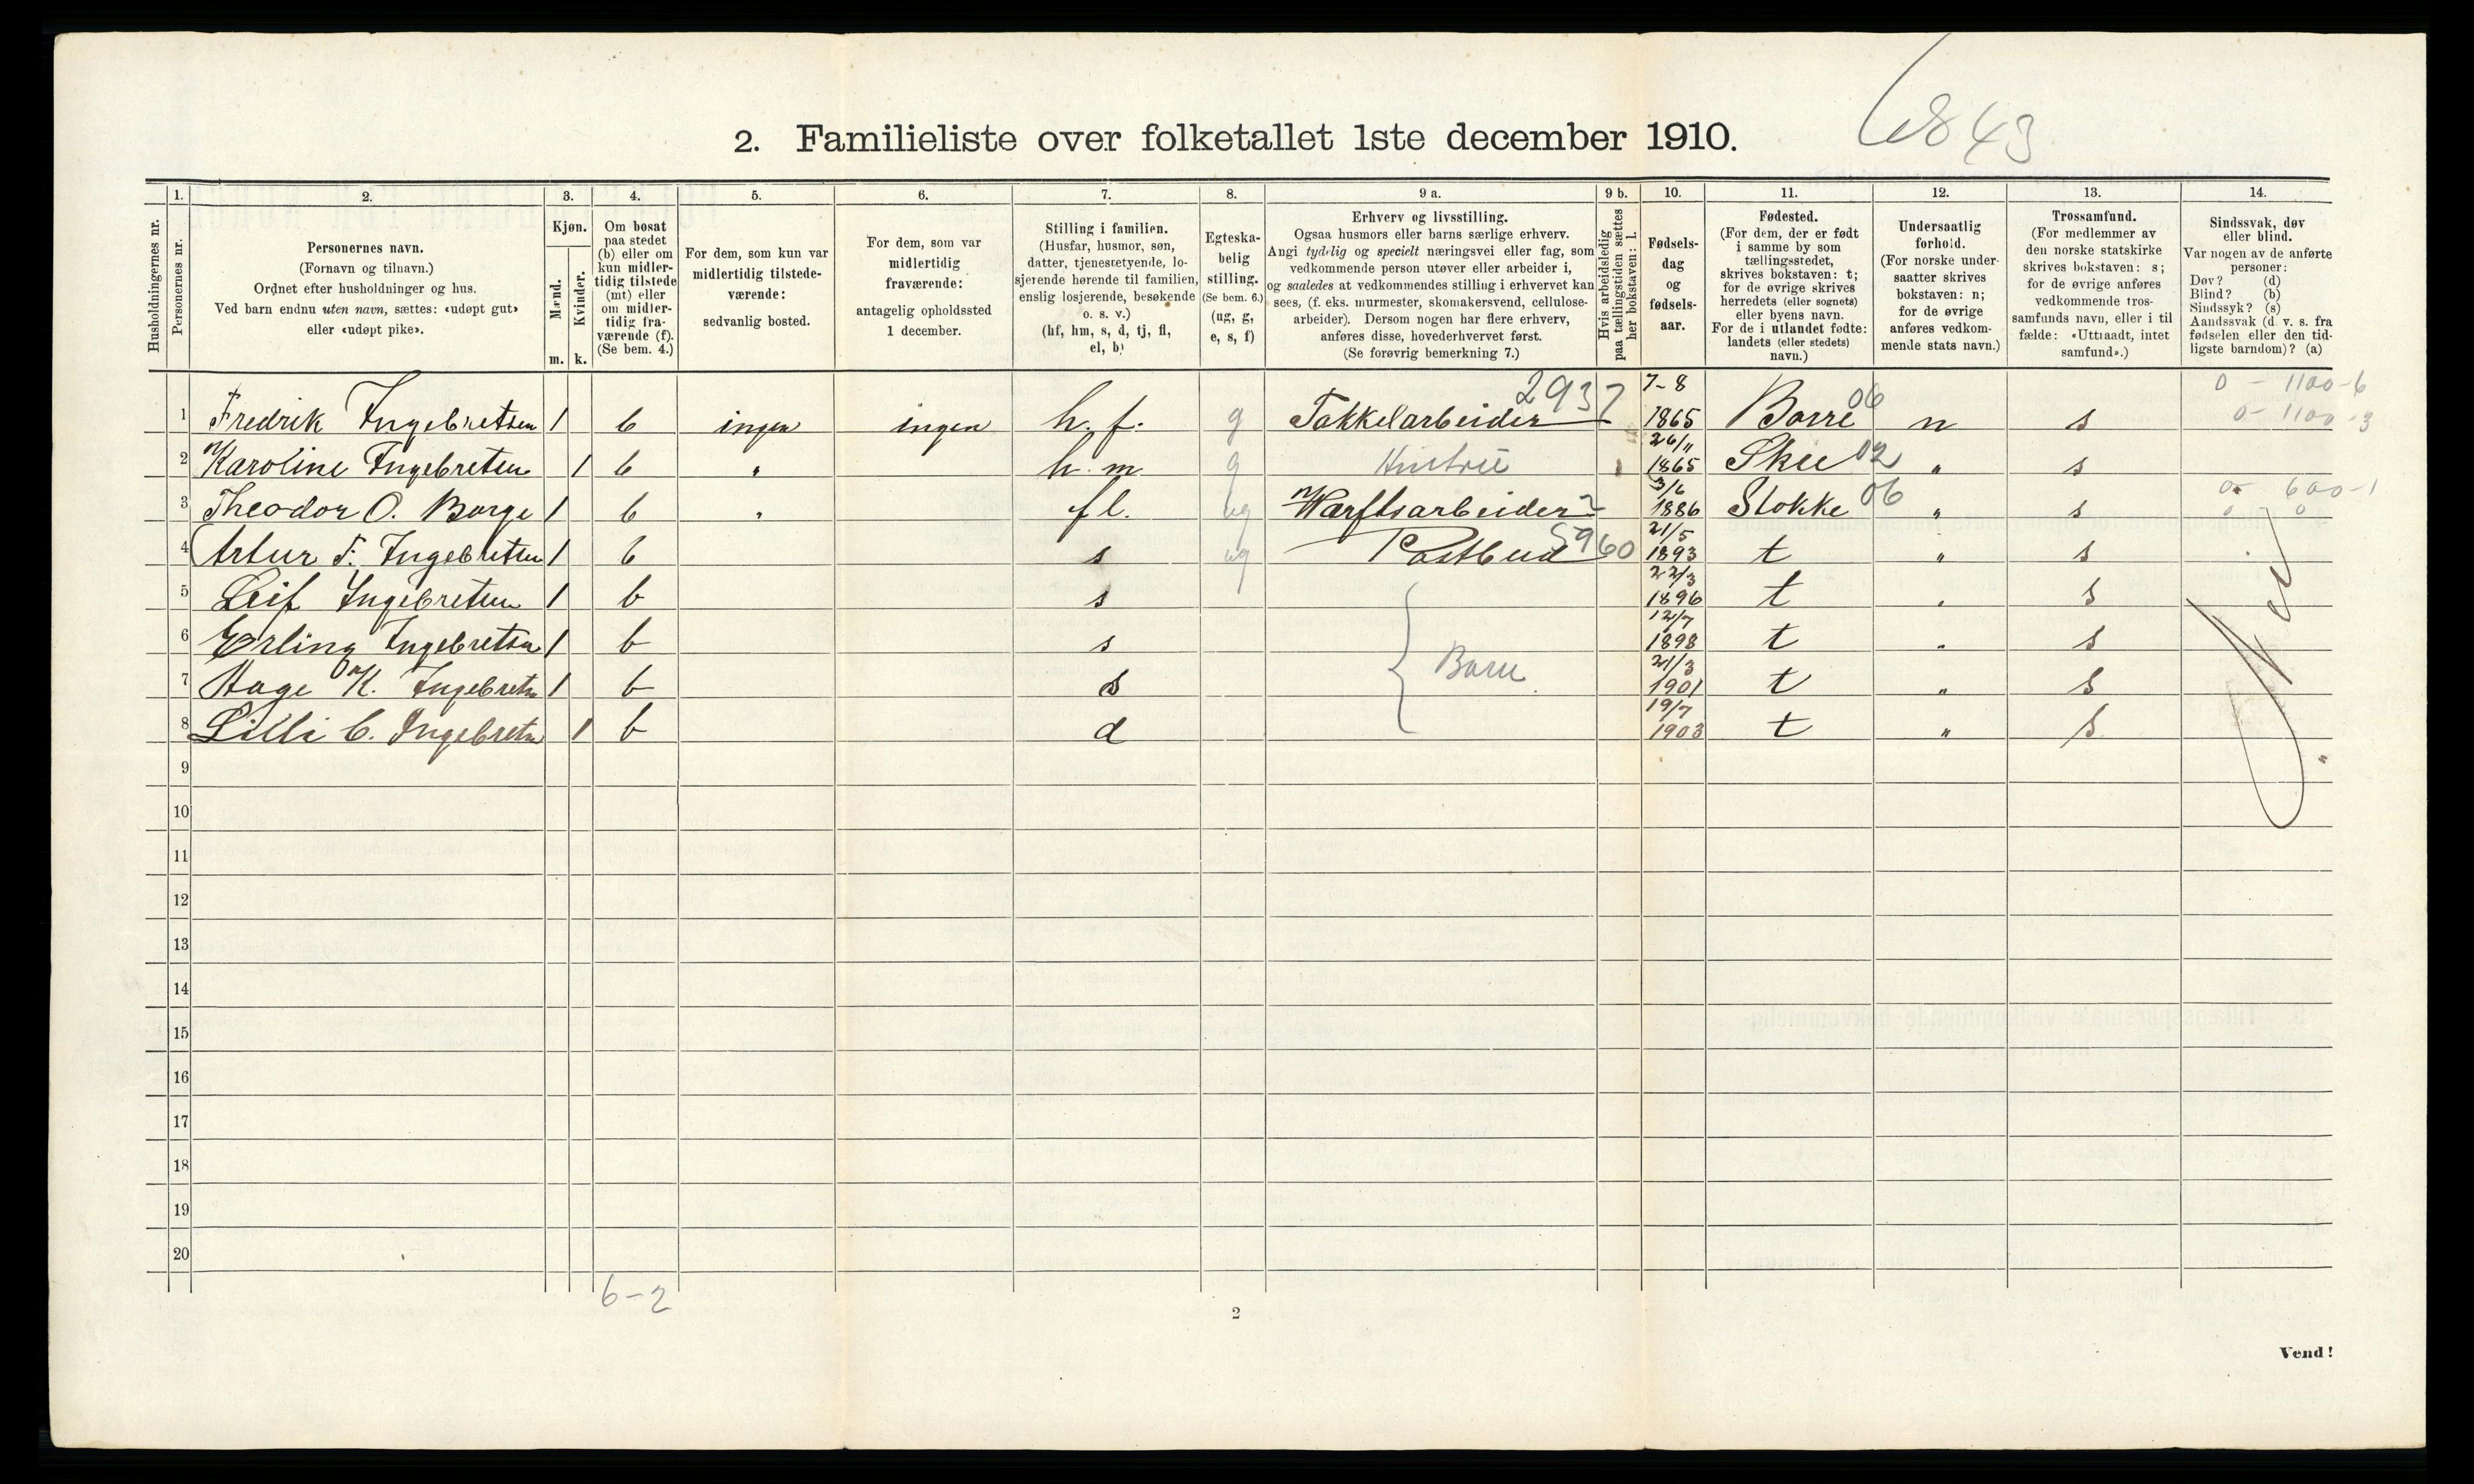 6843
2. Familieliste over folketallet 1ste december 1910.
Husholdningernes nr.
1.
Personernes nr.
2.
Personernes navn.
(Fornavn og tilnavn.)
Ordnet efter husholdninger og hus.
Ved barn endnu uten navn, sættes: «udøpt gut»
eller «udøpt pike».
3.
Kjøn.
Mænd.
Kvinder.
m. k.
4.
Om bosat
paa stedet
(b) eller om
kun midler-
tidig tilstede
(mt) eller
om midler-
tidig fra-
værende (f).
(Se bem. 4.)
5.
For dem, som kun var
midlertidig tilstede-
værende:
sedvanlig bosted.
6.
For dem, som var
midlertidig
fraværende:
antagelig opholdssted
1 december.
7.
Stilling i familien.
(Husfar, husmor, søn,
datter, tjenestetyende, lo-
sjerende hørende til familien,
enslig losjerende, besøkende
o. s. v.)
(hf, hm, s, d, tj, fl,
el, b)
8.
Egteska-
belig
stilling.
(Se bem. 6.)
(ug, g,
e, s, f)
9 a.
Erhverv og livsstilling.
Ogsaa husmors eller barns særlige erhverv.
Angi tydelig og specielt næringsvei eller fag, som
vedkommende person utøver eller arbeider i,
og saaledes at vedkommendes stilling i erhvervet kan
sees, (f. eks. murmester, skomakersvend, cellulose-
arbeider). Dersom nogen har flere erhverv,
anføres disse, hovederhvervet først.
(Se forøvrig bemerkning 7.)
9 b.
Hvis arbeidsledig
paa tællingstiden sættes
her bokstaven: l.
10.
Fødsels-
dag
og
fødsels-
aar.
11.
Fødested.
(For dem, der er født
i samme by som
tællingsstedet,
skrives bokstaven: t;
for de øvrige skrives
herredets (eller sognets)
eller byens navn.
For de i utlandet fødte:
landets (eller stedets)
navn.)
12.
Undersaatlig
forhold.
(For norske under-
saatter skrives
bokstaven: n;
for de øvrige
anføres vedkom-
mende stats navn.)
13.
Trossamfund.
(For medlemmer av
den norske statskirke
skrives bokstaven: s;
for de øvrige anføres
vedkommende tros-
samfunds navn, eller i til
fælde: «Uttraadt, intet
samfund».)
14.
Sindssvak, døv
eller blind.
Var nogen av de anførte
personer:
Døv? (d)
Blind? (b)
Sindssyk? (s)
Aandssvak (d. v. s. fra
fødselen eller den tid-
ligste barndom)? (a)
1 Fredrik Ingebretsen 1 b ingen ingen h. f. g Takkelarbeider 2937 7-8 1865 Borre 06 n s 0 - 1100-6 0 - 1100-3
2 Karoline Ingebretsen 1 b " h. m g Hustru 26/11 1865 Skee 02 " s
3 Theodor O. Borge 1 b " fl. ug Warftsarbeider 3/6 1886 Stokke 06 " s 0 - 600-1 0 0
4 Artur F. Ingebretsen 1 b s ug Postbud 5960 21/5 1893 t " s
5 Leif Ingebretsen 1 b s 22/3 1896 t " s
6 Erling Ingebretsen 1 b s Barn 12/7 1898 t " s
7 Hage K. Ingebretn 1 b s 21/3 1901 t " s
8 Lilli C. Ingebretn 1 b d 19/7 1903 t " s
Nei
9
10
11
12
13
14
15
16
17
18
19
20
6-2
2
Vend!